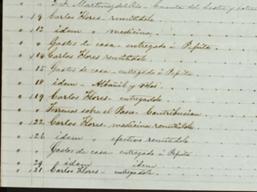 Carlos Flores remitidole
12 idem a medicina
Gastos de casa entregado à Pepita
14 Carlos Flores remitidole
15 Gastos de casa entregado à Pepita
18 idem Albañil y
19 Carlos Flores entregadole
sobre el Contribucion
22 Carlos Flores medicina remitidole
26 idem efectivo remitidole
Gastos de casa entregado à Pepita
29 idem idem
31 Carlos Flores entregadole